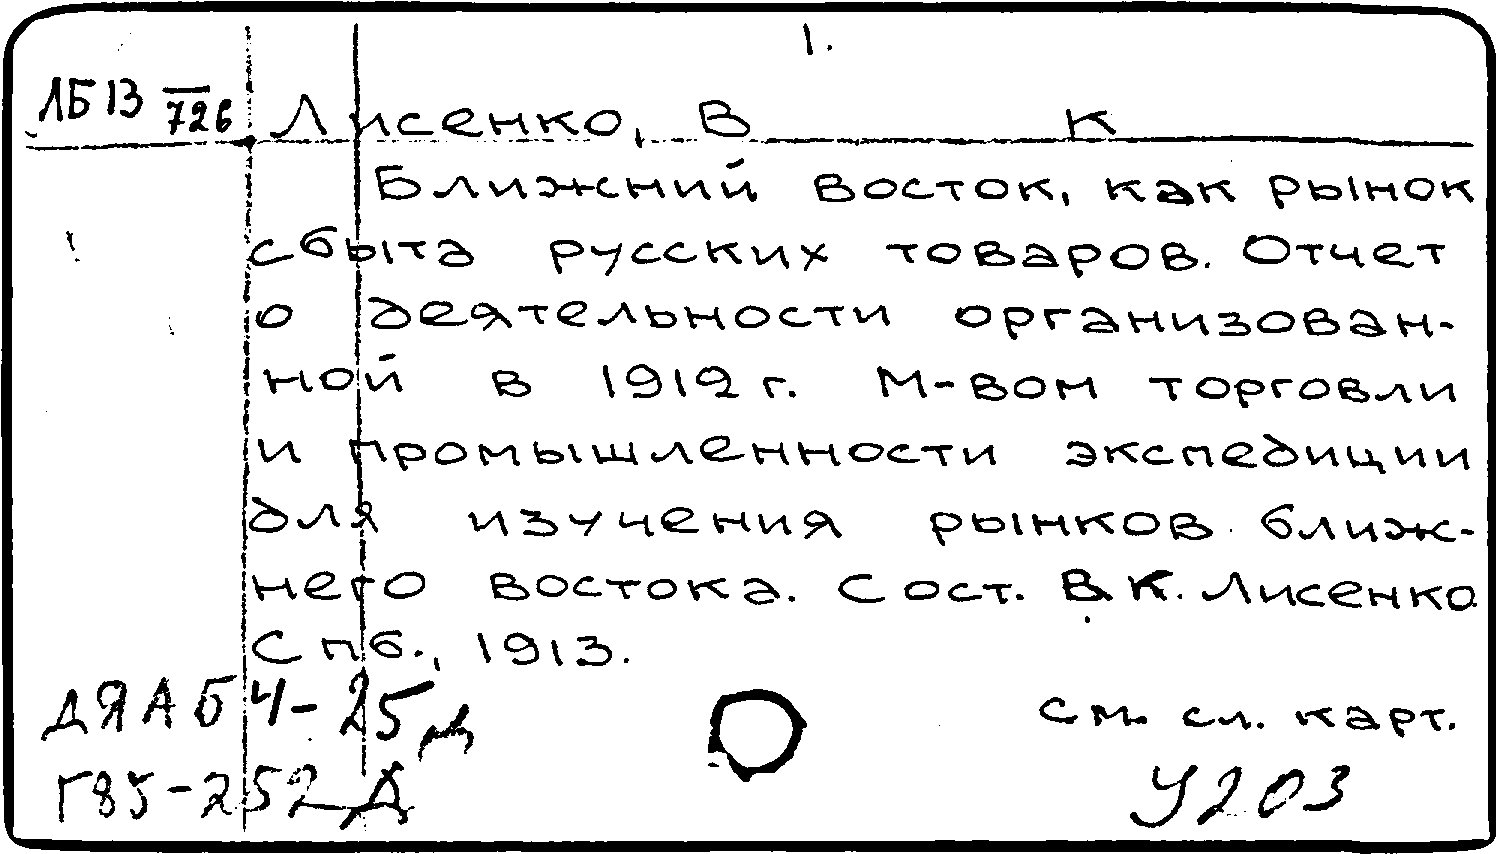 1.
ЛБ13 726 Лисенко, В К
Ближний восток, как рынок
сбыта русских товаров. Отчет
о деятельности организован-
ной в 1912 г. М-вом торговли
и промышленности экспедиции
для изучения рынков ближ-
него востока. Сост. В.К. Лисенко
Спб., 1913.
ДЯАБ 4-25
см. сл. карт.
Г85-252
У203